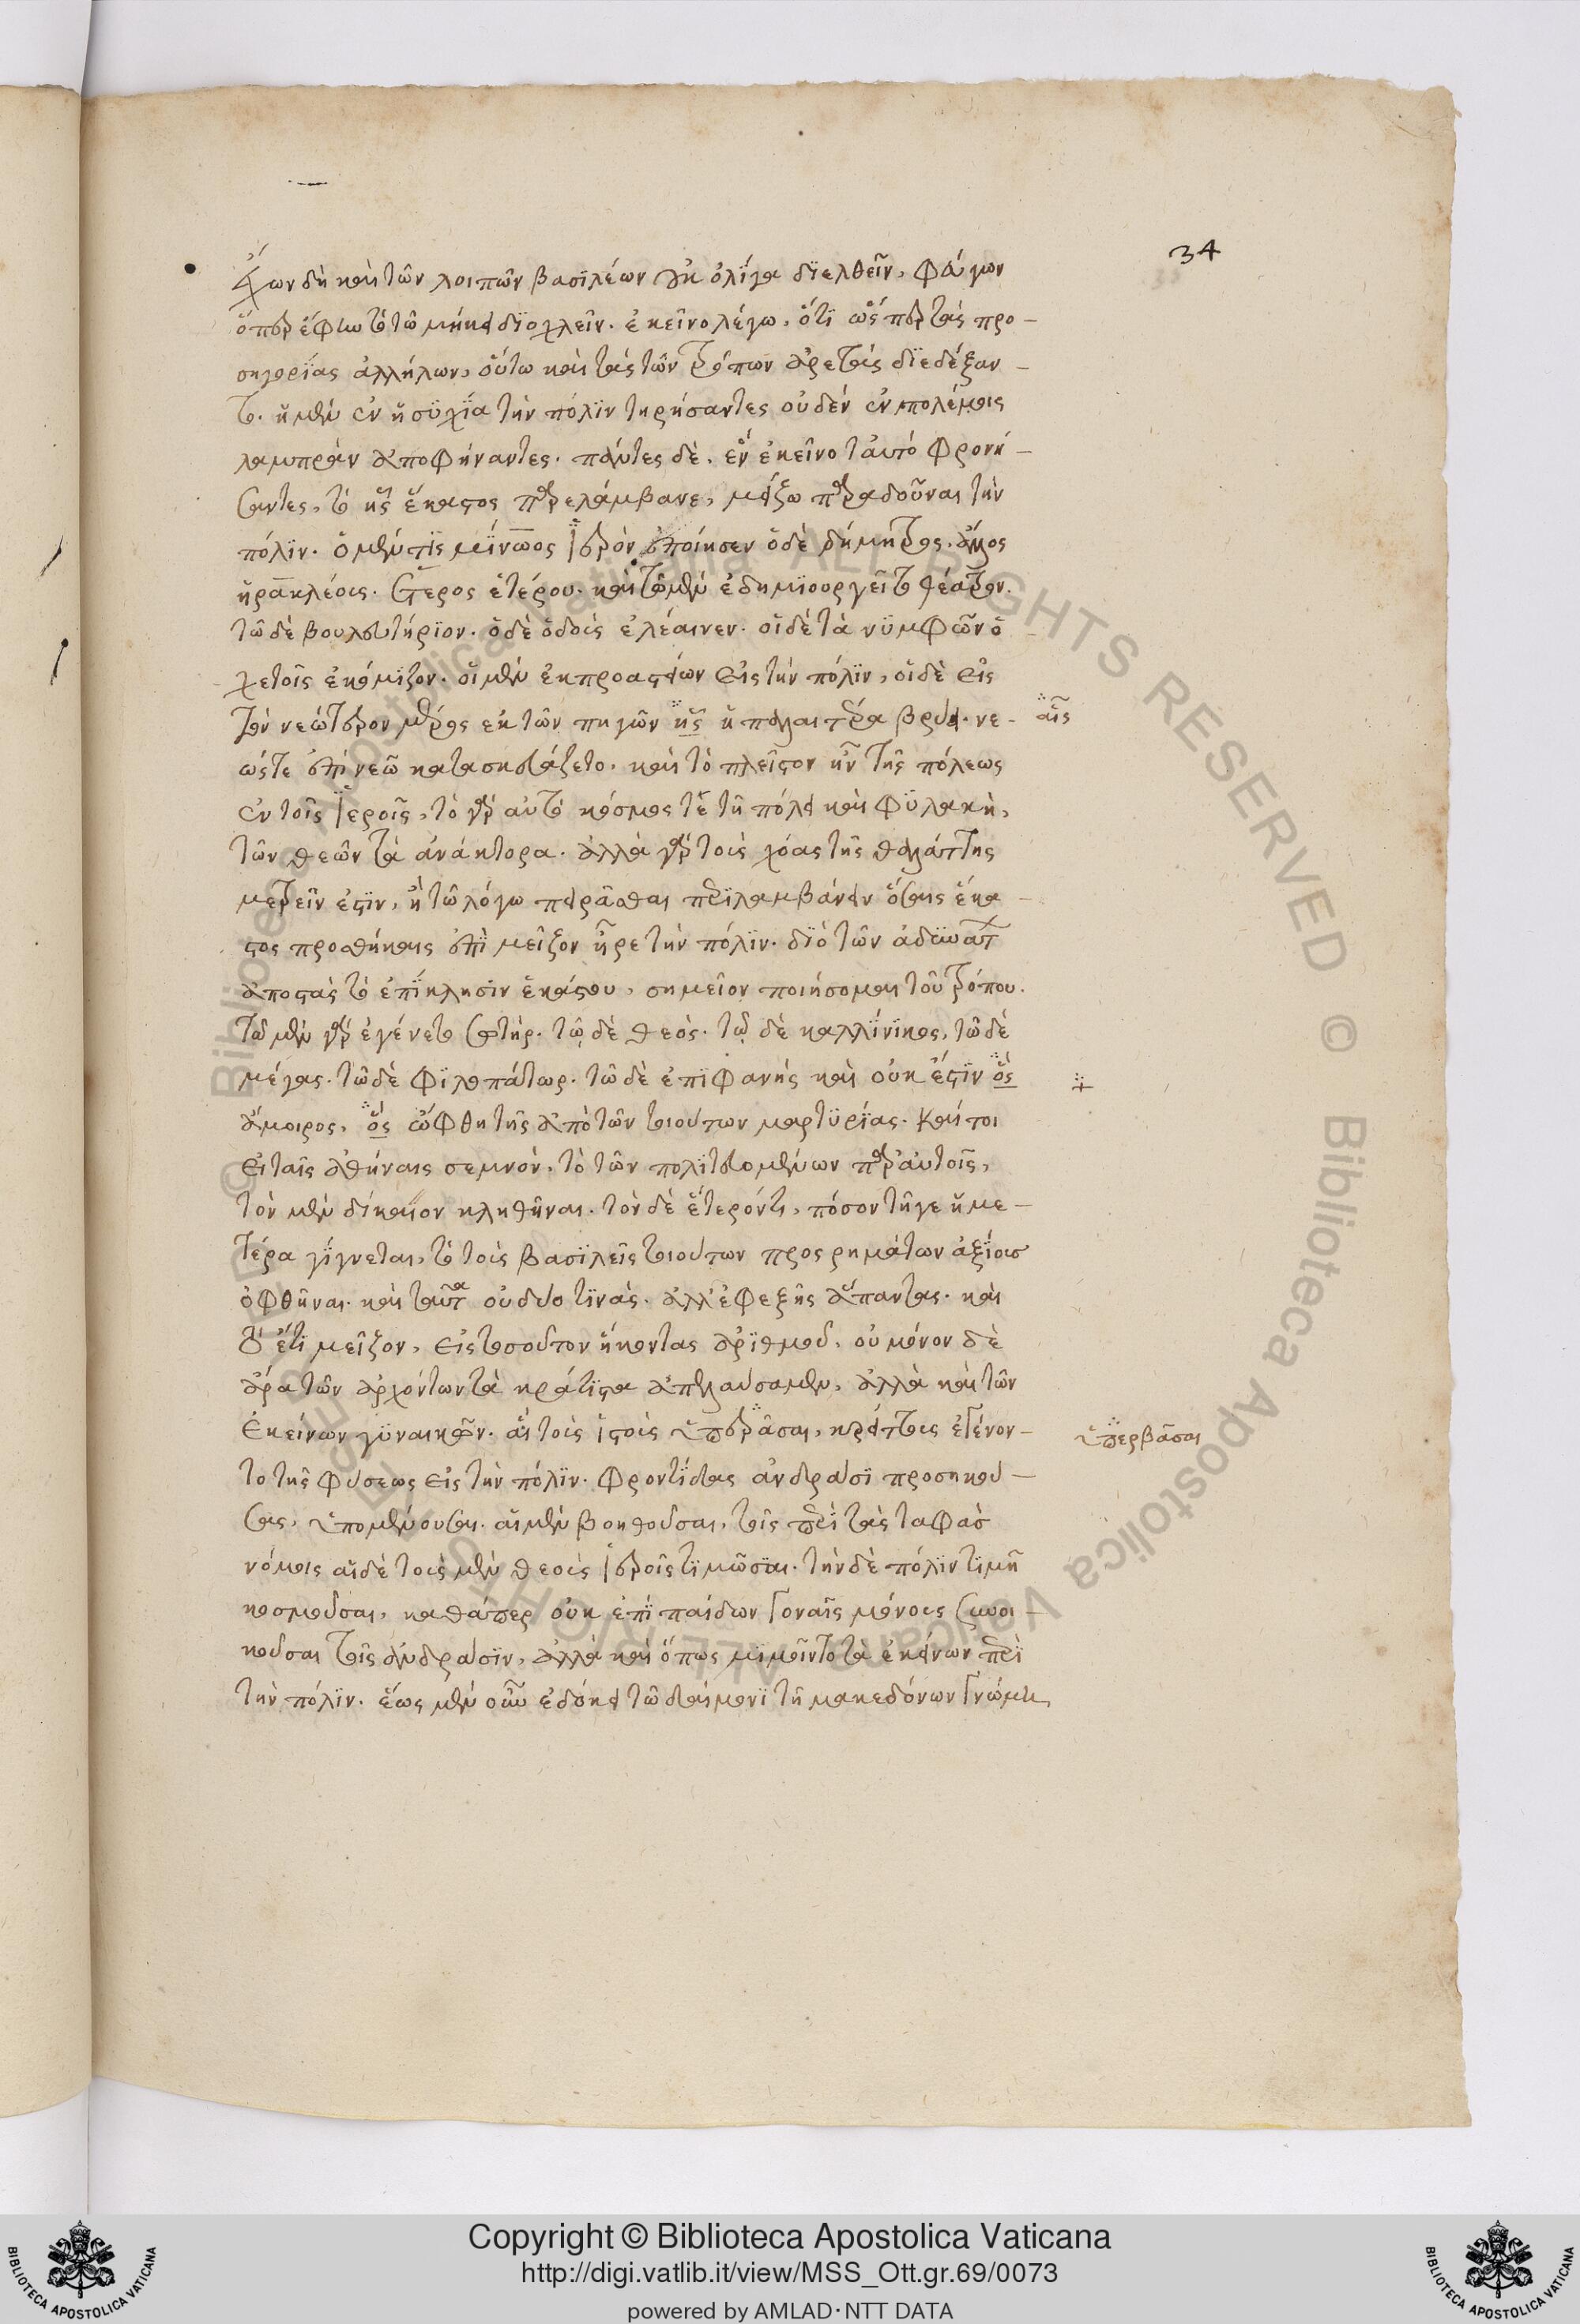 34
ἔχων δὴ καὶ τῶν λοιπῶν βασϊλέων οὐκ ὀλΐγα διελθεῖν, φεύγων
ὅπερ ἔφην τὸ τῶ μήκει διοχλεῖν. ἐκεῖνο λέγω, ὅτι ὥσπερ τὰς προ-
σηγορίας ἀλλήλων, οὕτω καὶ τὰς τῶν τρόπων ἀρετὰς διεδέξαν-
το. ἡ μὲν ἐν ἡσυχίᾳ τὴν πόλιν τηρήσαντες οὐδὲν ἐν πολέμοις
λαμπρὰν ἀποφήναντες. πάντες δὲ, ἓν ἐκεῖνο ταυτὸ φρονή-
σαντες, τὸ ἧς ἕκαστος παρελάμβανε, μείζω παραδοῦναι τὴν
πόλιν. ὁ μέν τις μίνωος ἱερὸν ἐποίησεν ὁ δὲ δήμητρος. ἄλλος
ἡρακλέους. ἕτερος ἑτέρου. καὶ τῶ μὲν ἐδημιουργεῖτο θέατρον.
τῶ δὲ βουλευτήριον. ὁ δὲ ὁδοὺς ἐλέαινεν. οἱ δὲ τὰ νυμφῶν ὀ-
χετοῖς ἐκόμιζον. οἱ μὲν ἐκ προαστείων εἰς τὴν πόλιν, οἱ δὲ εἰς
τὸν νεώτερον μέρος ἐκ τῶν πηγῶν ἧς ἡ παλαιτέρα βρύει. νε- αἷς
ώς τε ἐπὶ νεῶ κατασκευάζετο. καὶ τὸ πλεῖστον ἦν τῆς πόλεως
ἐν τοῖς ἱεροῖς, τὸ γὰρ αὐτὸ κόσμος τὲ τῆ πόλει καὶ φυλακὴ,
τῶν θεῶν τὰ ἀνάκτορα. ἀλλὰ γὰρ τοὺς χόας τῆς θαλάττης
μετρεῖν ἐστιν, ἢ τῶ λόγω πειρᾶσθαι περιλαμβάνειν ὅσαις ἕκα-
στος προσθήκαις ἐπὶ μεῖζον ἦρε τὴν πόλιν. διὸ τῶν ἀδυνάτων
ἀποστὰς τὸ ἐπίκλησιν ἑκάστου, σημεῖον ποιήσομαι τοῦ τρόπου.
τῶ μὲν γὰρ ἐγένετο σωτήρ. τῶ δὲ θεὸς. τῶ δὲ καλλίνικος, τῶ δὲ
μέγας. τῶ δὲ φιλοπάτωρ. τῶ δὲ ἐπιφανὴς καὶ οὐκ ἔστιν ὃς
ἄμοιρος, ὃς ὤφθη τῆς ἀπὸ τῶν τοιούτων μαρτυρίας. καίτοι
εἰ ταῖς ἀθήναις σεμνὸν, τὸ τῶν πολιτευομένων παρ' αὐτοῖς,
τὸν μὲν δίκαιον κληθῆναι. τὸν δὲ ἕτερόν τι, πόσον τῆ γε ἡμε-
τέρα γίγνεται, τὸ τοὺς βασιλεῖς τοιούτων προσρημάτων ἀξίους
ὀφθῆναι. καὶ ταῦτα οὐ δύο τινὰς. ἀλλ' ἐφεξῆς ἅπαντας. καὶ
τὸ ἔτι μεῖζον, εἰς τοσοῦτον ἥκοντας ἀριθμοῦ, οὐ μόνον δὲ
ἄρα τῶν ἀρχόντων τὰ κράτιστα ἀπελαύσαμεν, ἀλλὰ καὶ τῶν
ἐκείνων γυναικῶν. αἳ τοὺς ἱστοὺς ὑπερᾶσαι, κρείττους ἐγένον- ὑπερβᾶσαι
το τῆς φύσεως εἰς τὴν πόλιν. φροντίδας ἀνδράσι προσηκού-
σας, ὑπομένουσαι. αἱ μὲν βοηθοῦσαι, τοῖς περὶ τὰς ταφὰς
νόμοις αἱ δὲ τοὺς μὲν θεοὺς ἱεροῖς τιμῶσαι. τὴν δὲ πόλιν τιμῆ
κοσμοῦσαι, καθάπερ οὐκ ἐπὶ παίδων γοναῖς μόνους συνοι-
κοῦσαι τοῖς ἀνδράσιν, ἀλλὰ καὶ ὅπως μιμοῖντο τὰ ἐκείνων περὶ
τὴν πόλιν. ἕως μὲν οὖν ἐδόκει τῶ δαίμονι τῆ μακεδόνων γνώμη
Copyright © Biblioteca Apostolica Vaticana
http://digi.vatlib.it/view/MSS_Ott.gr.69/0073
powered by AMLAD·NTT DATA